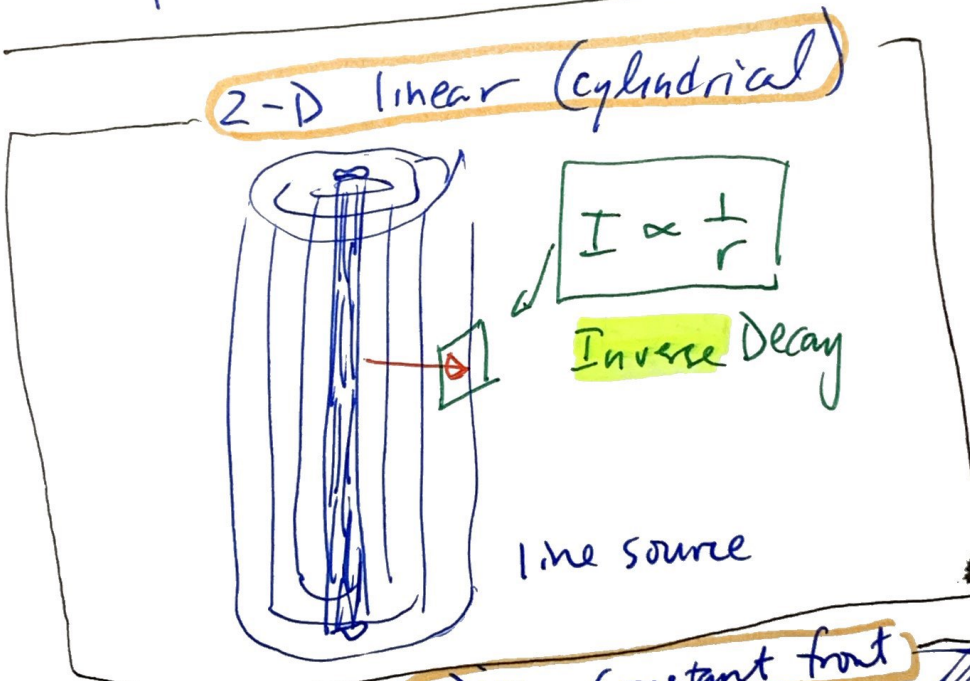 2-D linear (cylindrical)
I ∝ 1/r
Inverse Decay
line source
constant front